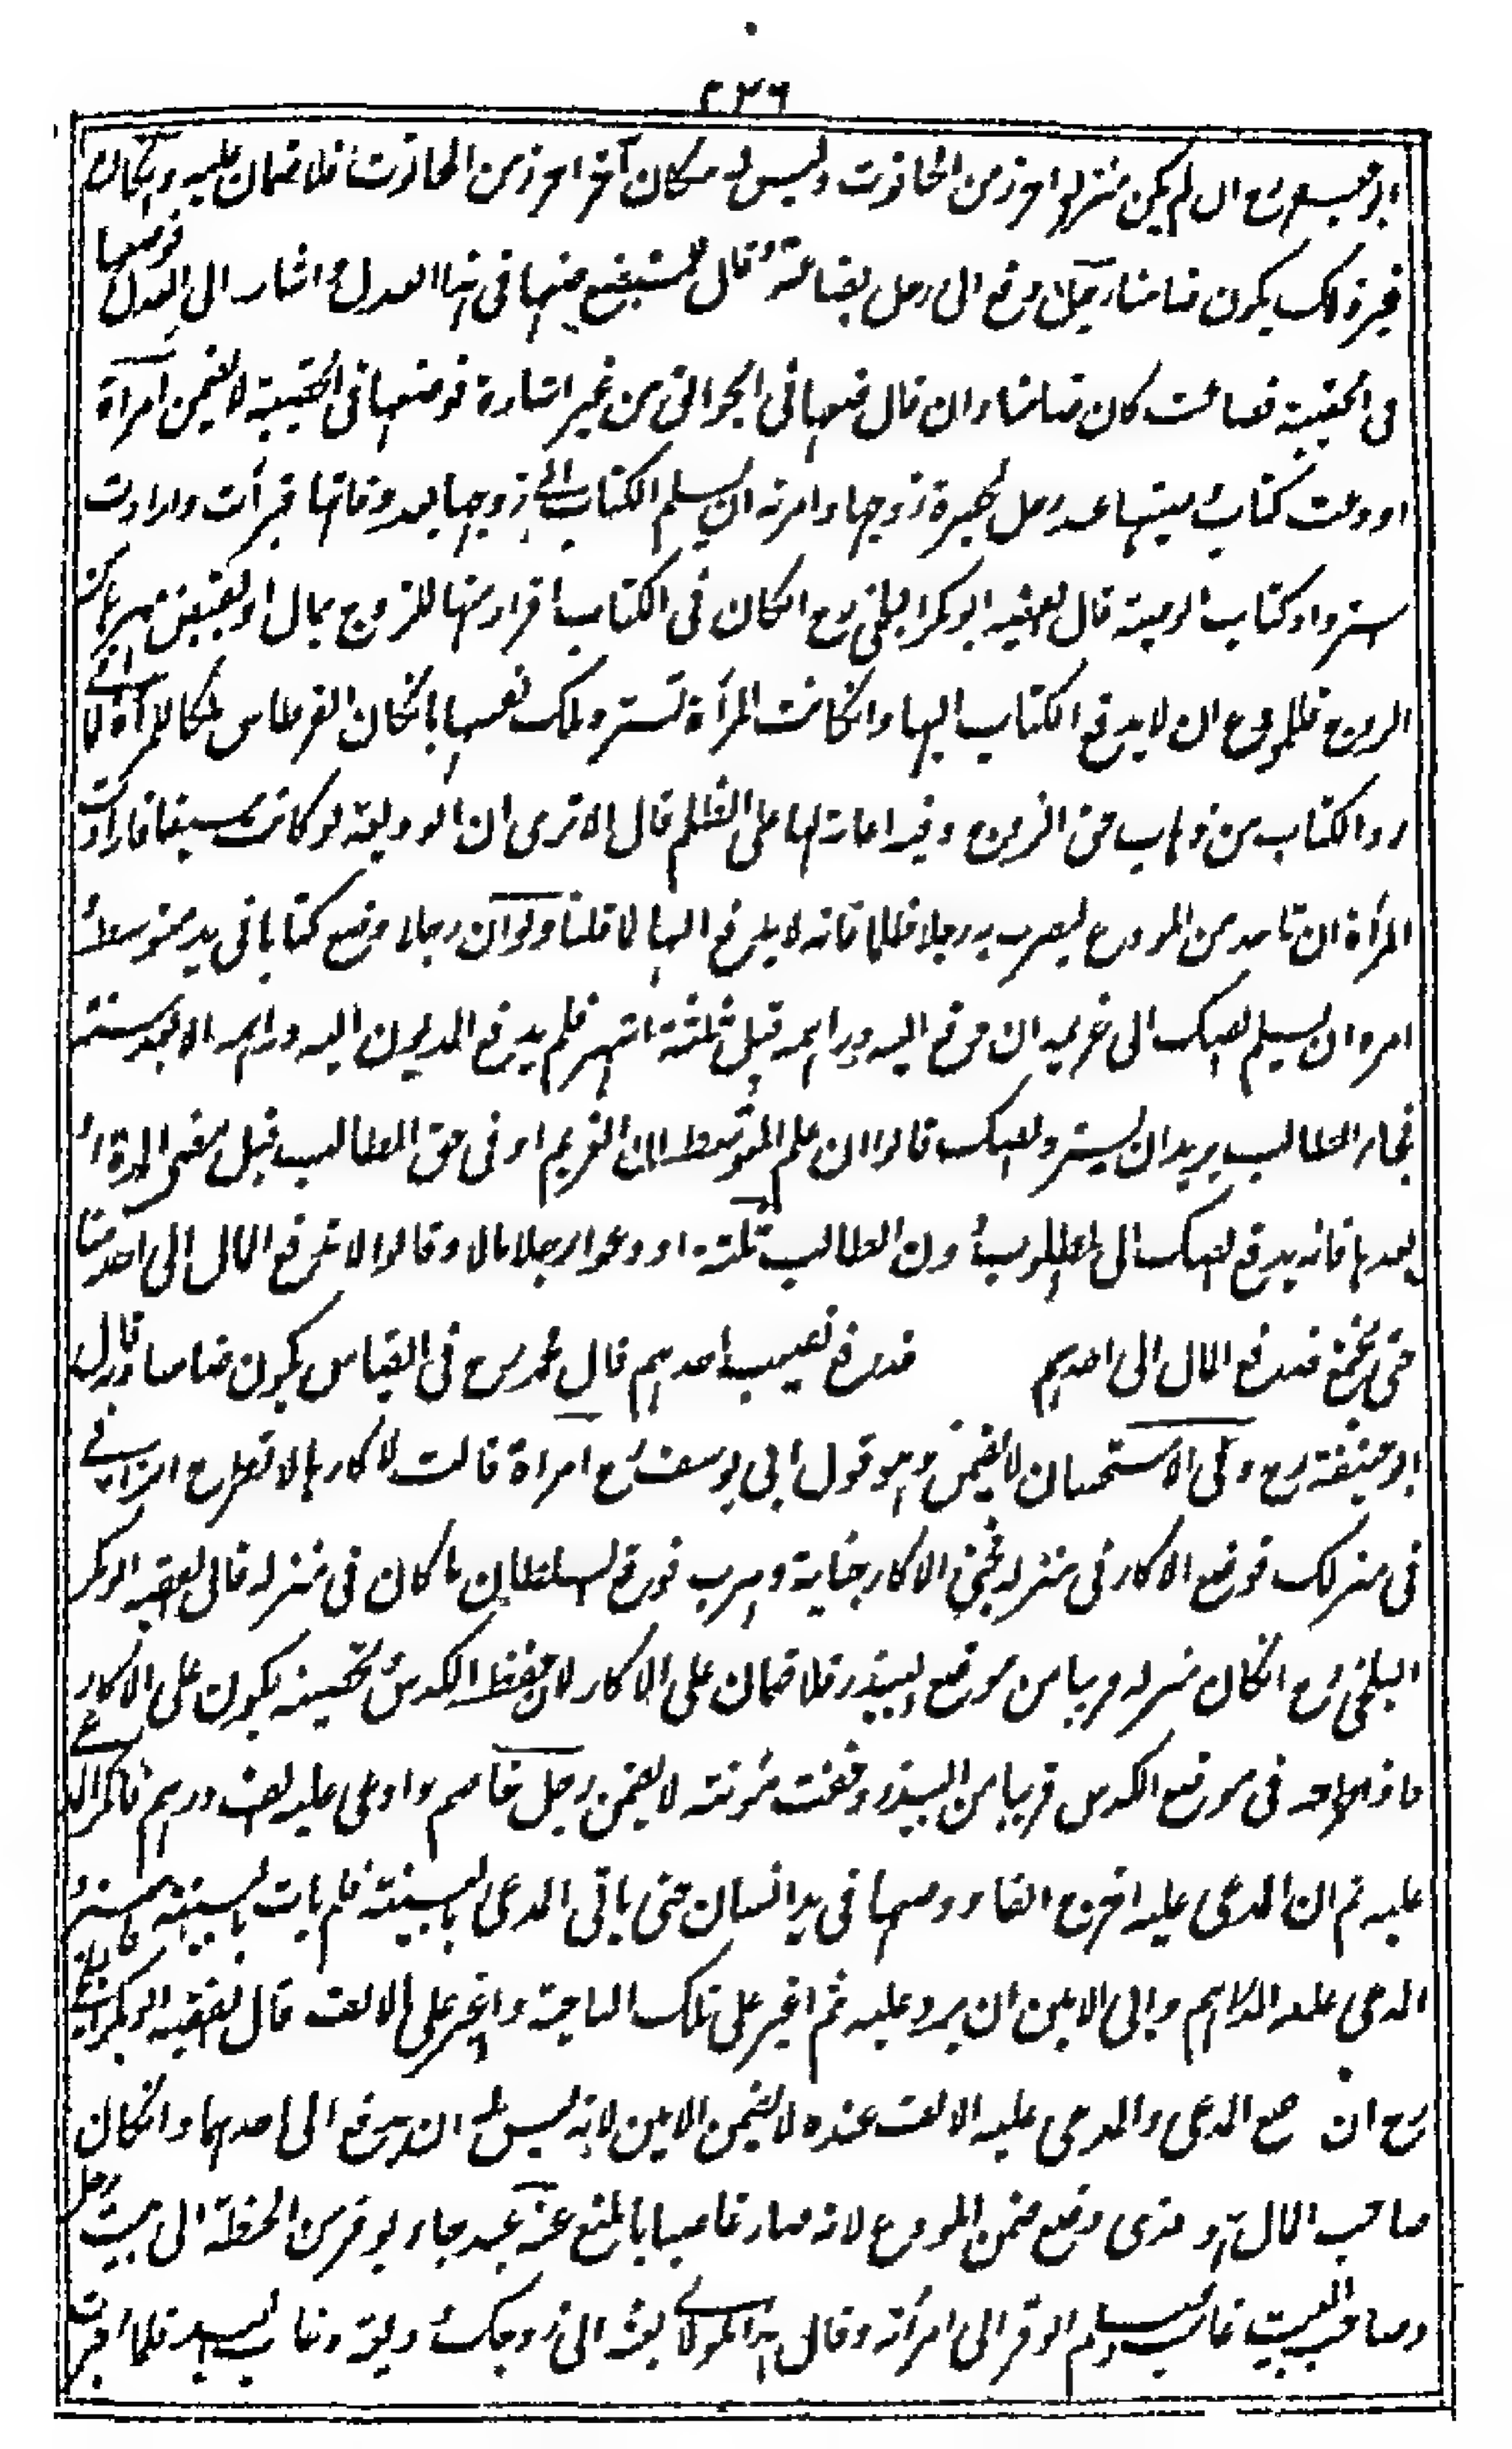 ٢٣٦
ابو جعفر رح ان لم يكن منزله احرز من الحانوت وليس له مكان آخر احرز من الحانوت فلا ضمان عليه وانكان
غير ذلك يكون ضامنا رجل دفع الى رجل بضاعة وقال للمستبضع ضعها فى هذا العدل واشار الى العدل فوضعها
فى الحقيبة فضاعت كان ضامنا وان قال ضعها فى الجوالق من غير اشارة فوضعها فى الحقيبة لا يضمن امرأة
اودعت كتاب وصيتها عند رجل بحضرة زوجها وامرته ان يسلم الكتاب الى زوجها بعد وفاتها فبرأت وارادت
استرداد كتاب الوصية قال الفقيه ابو بكر البلخى رح انكان فى الكتاب اقرار منها للزوج بمال او بقبض مهرها من
الزوج فللمودع ان لا يدفع الكتاب اليها وانكانت المرأة تسترد ملك نفسها بانكان القرطاس ملكا للمرأة لما فى
رد الكتاب من ذهاب حق الزوج وفيه اعانة لها على الظلم قال الا ترى ان الوديعة لو كانت سيفا فارادت
المرأة ان تاخذ من المودع ليضرب به رجلا ظلما فانه لا يدفع اليها لما قلنا ولو ان رجلا وضع كتابا فى يد متوسط و
امره ان يسلم الصك الى غريمه ان دفع اليه دراهمه قبل ثلثة اشهر فلم يدفع المديون اليه دراهمه الا بعد سنة
فجاء الطالب يريد ان يسترد الصك قالوا ان علم المتوسط ان الغريم اوفى حق الطالب قبل مضى المدة او
بعدها فانه يدفع الصك الى المطلوب دون الطالب ثلثة اودعوا رجلا مالا وقالوا لا تدفع المال الى احد منا
حتى نجتمع فدفع المال الى احدهم فدفع نصيب احدهم قال محمد رح فى القياس يكون ضامنا وبه قال
ابو حنيفة رح وفى الاستحسان لا يضمن وهو قول ابى يوسف رح امرأة قالت لاكارها لا تطرح انزالى
فى منزلك فوضع الاكار فى منزله فجنى الاكار جناية وهرب فرفع السلطان ما كان فى منزله قال الفقيه ابو بكر
البلخى رح انكان منزله قريبا من موضع البيذر فلا ضمان على الاكار لان حفظ الكدس وتحصينه يكون على الاكار
فاذا طرحه فى موضع الكدس قريبا من البيذر وخفت مؤنته لا يضمن رجل خاصم وادعى عليه الف درهم فانكر المدعى
عليه ثم ان المدعى عليه اخرج الفا ووضعها فى يد انسان حتى ياتى المدعى بالبينة فلم يات بالبينة فاسترد
المدعى عليه الدراهم وابى الامين ان يرد عليه ثم اغير على تلك الناحية واغير على الالف قال الفقيه ابو بكر البلخى
رح ان وضع المدعى والمدعى عليه الالف عنده لا يضمن الامين لانه ليس له ان يدفع الى احدهما وانكان
صاحب المال هو الذى وضع ضمن المودع لانه صار غاصبا بالمنع عنه عبد جاء بوقر من الحنطة الى بيت رجل
وصاحب البيت غائب فسلم الوقر الى امرأته وقال هذا لمولاى بعثه الى زوجك وديعة وغاب العبد فلما اخبرت